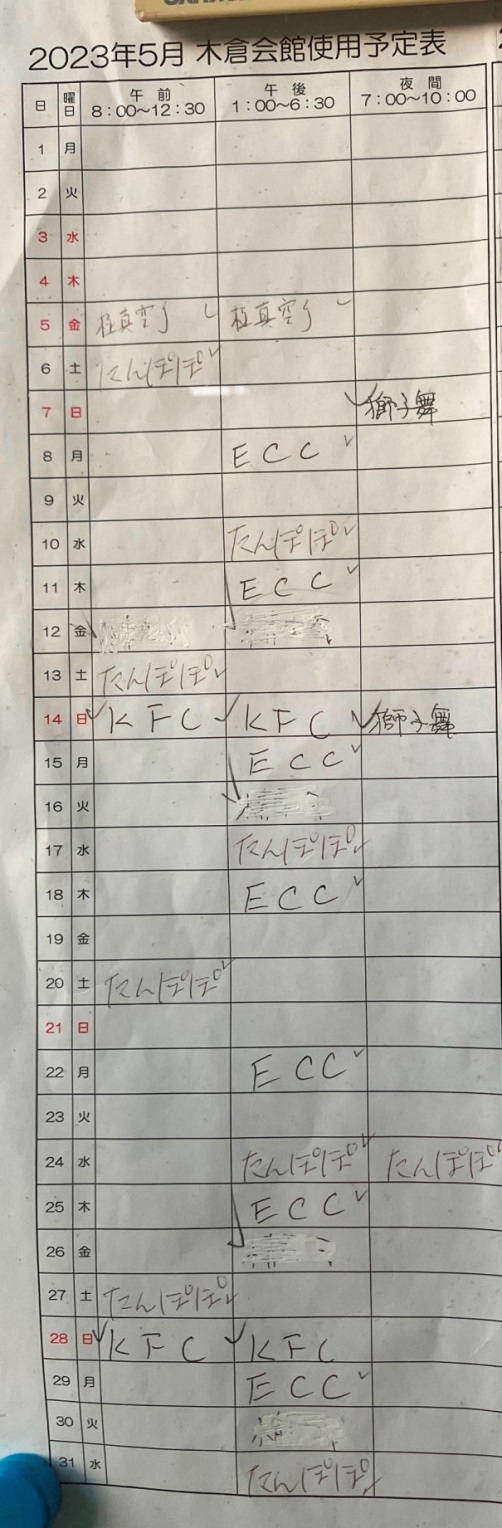 2023年5月 木倉会館使用予定表
日 曜日 午前 8:00〜12:30 午後 1:00〜6:30 夜間 7:00〜10:00
1 月
2 火
3 水
4 木
5 金 極真空手 極真空手
6 土 たんぽぽ
7 日 獅子舞
8 月 ECC
9 火
10 水 たんぽぽ
11 木 ECC
12 金
13 土 たんぽぽ
14 日 KFC KFC 獅子舞
15 月 ECC
16 火
17 水 たんぽぽ
18 木 ECC
19 金
20 土 たんぽぽ
21 日
22 月 ECC
23 火
24 水 たんぽぽ たんぽぽ
25 木 ECC
26 金
27 土 たんぽぽ
28 日 KFC KFC
29 月 ECC
30 火
31 水 たんぽぽ